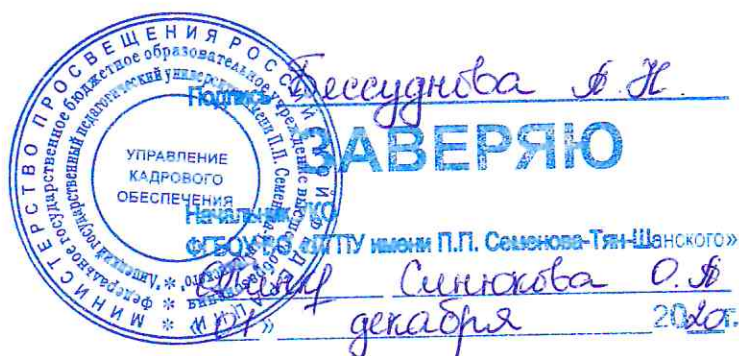 МИНИСТЕРСТВО ПРОСВЕЩЕНИЯ РОССИЙСКОЙ ФЕДЕРАЦИИ
Федеральное государственное бюджетное образовательное учреждение высшего образования
«Липецкий государственный педагогический университет имени П.П. Семенова-Тян-Шанского»
УПРАВЛЕНИЕ
КАДРОВОГО
ОБЕСПЕЧЕНИЯ
Подпись Бессуднова А. Н.
ЗАВЕРЯЮ
Начальник УКО
ФГБОУ ВО «ЛГПУ имени П.П. Семенова-Тян-Шанского»
Синюкова О. А
«01» декабря 2020г.